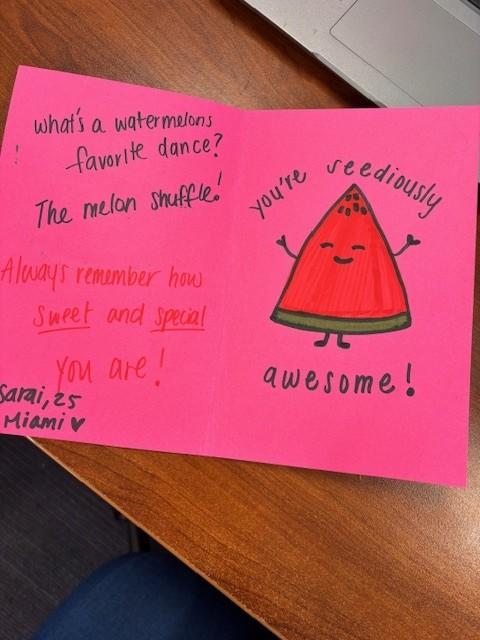 what's a watermelons
favorite dance?
The melon shuffle!
Always remember how
sweet and special
you are!
Sarai, 25
Miami ♥
you're seediously
awesome!